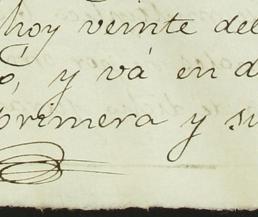 hoy veinte del
ó, y vá en d
primera y su